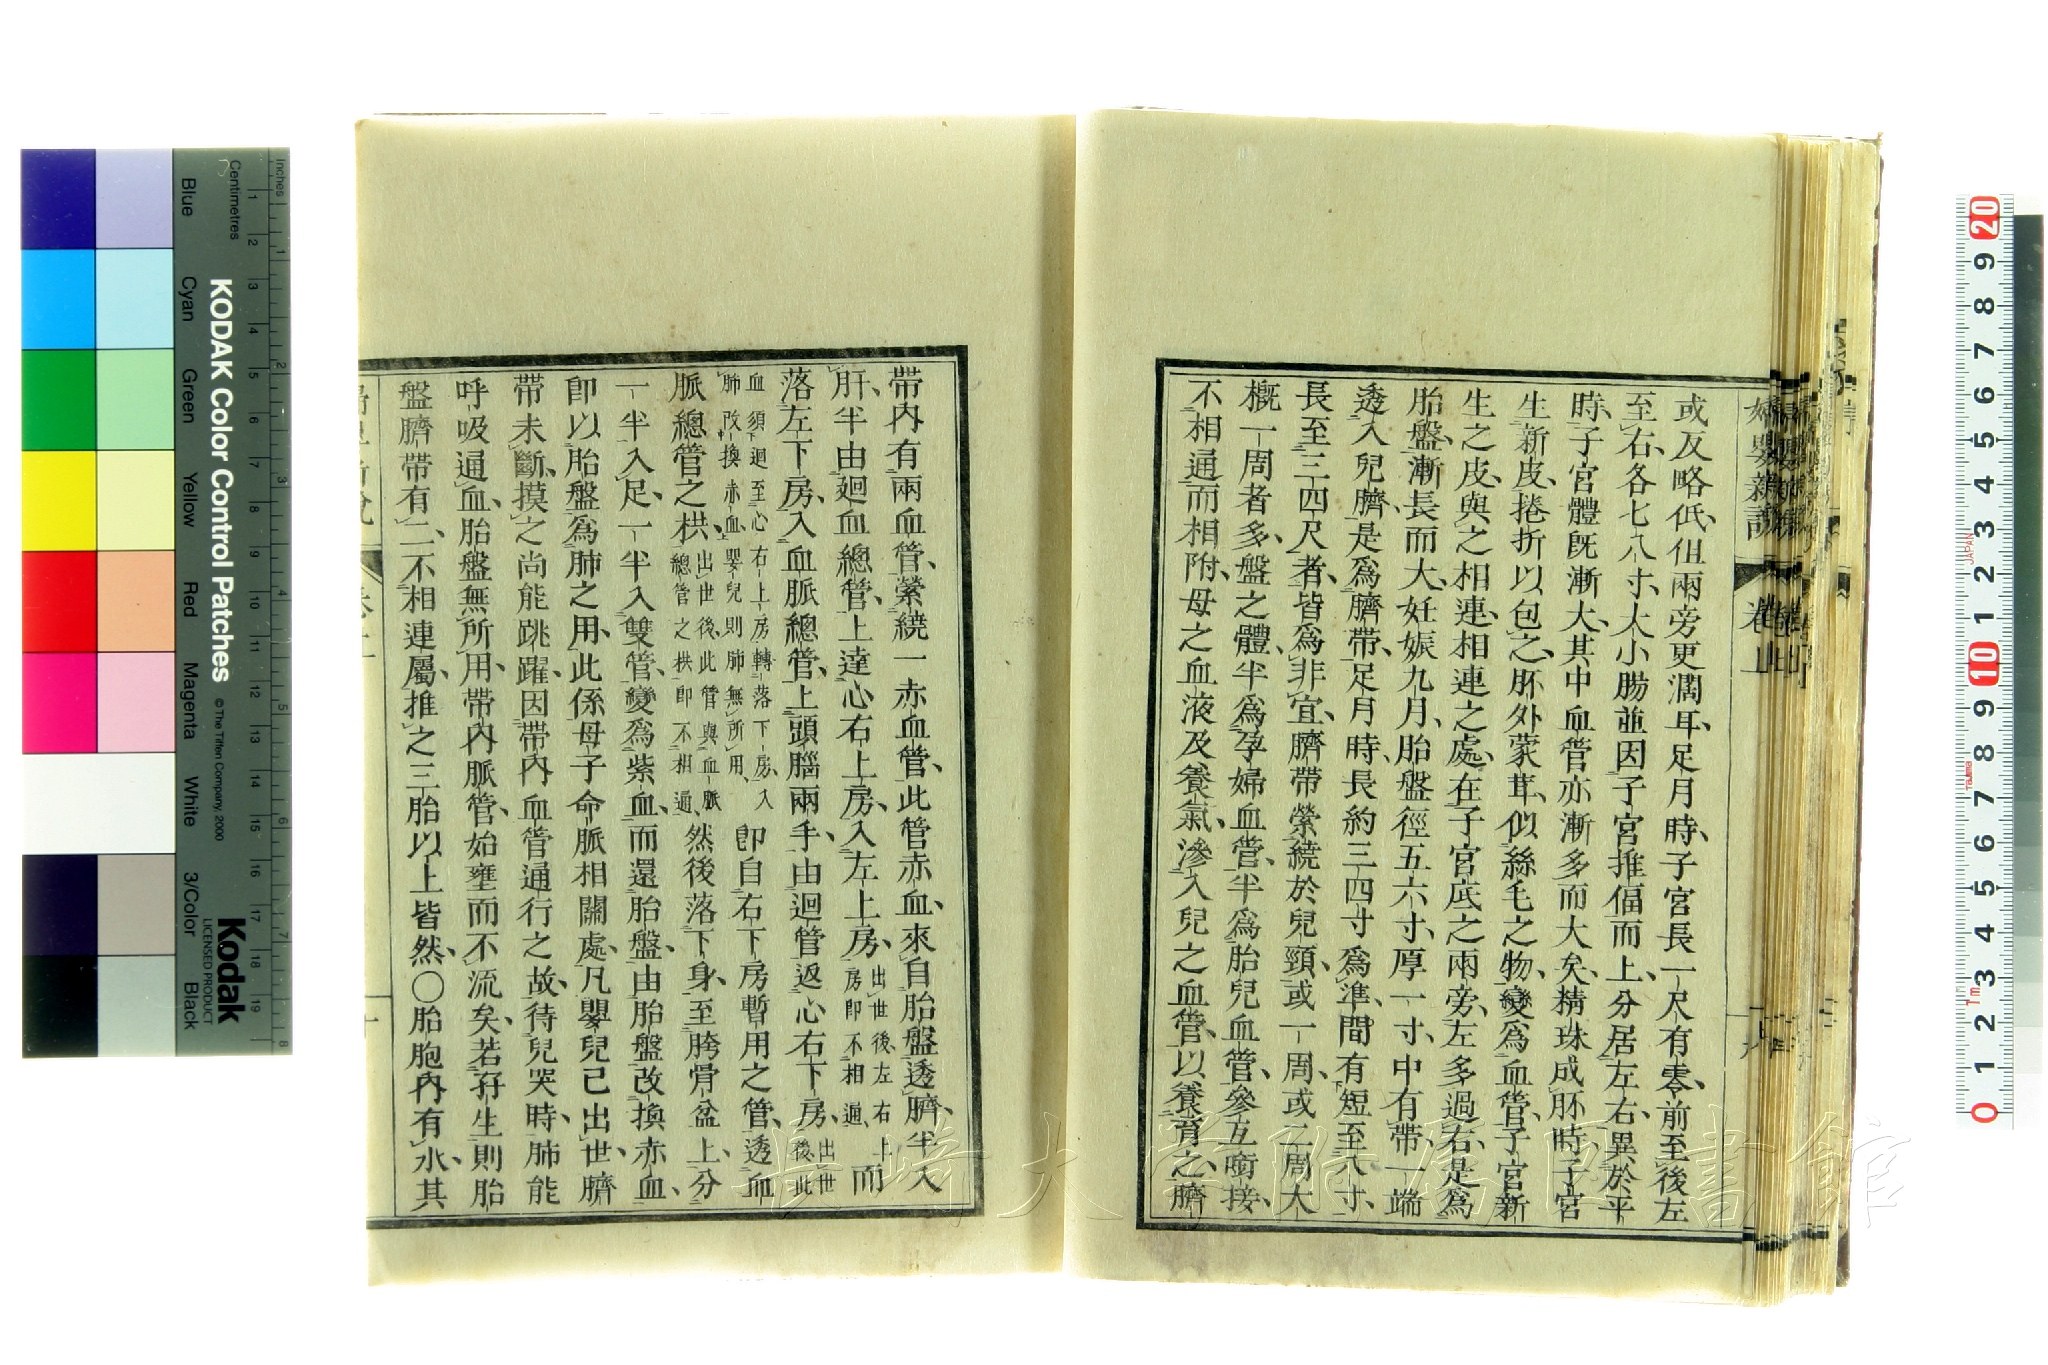 婦嬰新說
卷上
或反略低、但兩旁更濶耳、足月時、子宮長一尺有零、前至後左
至右、各七八寸、大小腸並因子宮推偪而上、分居左右、異於平
時、子宮體既漸大、其中血管亦漸多而大矣、精珠成胚時、子宮
生新皮、捲折以包之、胚外蒙茸、似絲毛之物、變爲血管、子宮新
生之皮、與之相連、相連之處、在子宮底之兩旁、左多過右、是爲
胎盤、漸長而大、妊娠九月、胎盤徑五六寸、厚一寸、中有帶、一端
透入兒臍、是爲臍帶、足月時、長約三四寸爲準、間有短至八寸、
長至三四尺者、皆爲非宜、臍帶縈繞於兒頸、或一周、或二周、大
概一周者多、盤之體、半爲孕婦血管、半爲胎兒血管、參互銜接、
不相通而相附、母之血液及養氣、滲入兒之血管、以養育之、臍
帶內有兩血管、縈繞一赤血管、此管赤血、來自胎盤、透臍、半入
肝、半由廻血總管、上達心右上房、入左上房、出世後、左右上房卽不相通、而
落左下房、入血脈總管、上頭腦兩手、由迴管返心右下房、出世後、此
血須迴至心右上房、轉落下房、入肺改換赤血、嬰兒則肺無所用、卽自右下房暫用之管、透血
脈總管之栱、出世後、此管與血脈總管之栱卽不相通、然後落下身、至胯骨盆上、分
一半入足、一半入雙管、變爲紫血、而還胎盤、由胎盤改換赤血、
卽以胎盤爲肺之用、此係母子命脈相關處、凡嬰兒已出世、臍
帶未斷、摸之尚能跳躍、因帶內血管通行之故、待兒哭時、肺能
呼吸通血、胎盤無所用、帶內脈管、始壅而不流矣、若孖生則胎
盤臍帶有二、不相連屬、推之三胎以上皆然、○胎胞內有水、其
KODAK Color Control Patches
© The Tiffen Company, 2000
Kodak
LICENSED PRODUCT
Inches
Centimetres
Blue
Cyan
Green
Yellow
Red
Magenta
White
3/Color
Black
長崎大学附属図書館